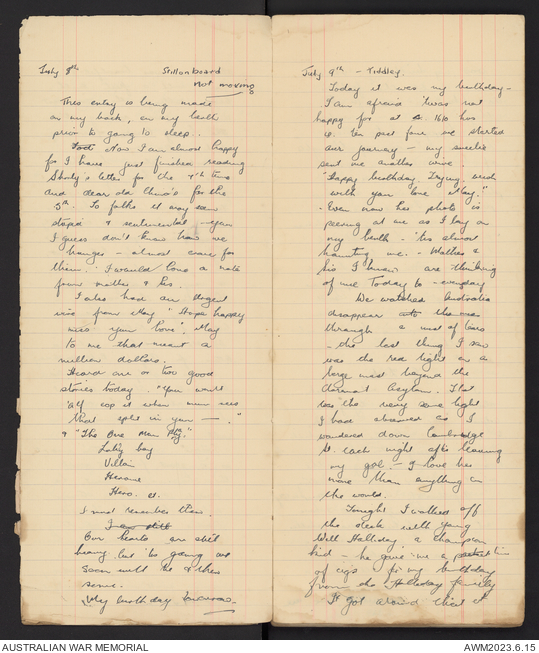 July 8th Still on board
Not moving
This entry is being made
on my back, on my berth
prior to going to sleep.
Now I am almost happy
for I have just finished reading
Shirly's letter for the 4th time
and dear old Chino's for the
3rd. To folks it may seem
stupid & sentimental
I guess don't know how we
hunger - almost crave for
them. I would love a note
from mother & sis.
I also had an urgent
wire from May "Hope happy
miss you love" May
to me that meant a
million dollars.
Heard one or two good
stories today. "You won't
'alf cop it when mum sees
that split in your — ."
& "The One Man Play"
Lobby boy
Villain
Heroine
Hero. a.
I must remember them.
I am still
Our hearts are still
heavy but 'tis going we
soon will be & then
some.
My birthday tomorrow.
July 9th - Tiddley.
Today it was my birthday -
I am afraid 'twas not
happy for at 1610 hrs
ie. ten past four we started
our journey - my sweetie
sent me another wire.
"Happy birthday Trying, with
with you love May."
- Even now her photo is
peering at me as I lay on
my berth - 'tis almost
haunting me. - Mother &
Sis I know are thinking
of me Today to - everyday
We watched Australia
disappear
through a mist of tears
- the last thing I saw
was the red light on a
large mast beyond the
dormant Asylum. That
was the very same light
I have observed as I
wandered down Cambridge
St. each night after leaving
my girl - I love her
more than anything in
the world.
Tonight I walked off
the deck with young
Will Halliday a champion
kid - he gave me a tin
of cigs for my birthday
from the Halliday family
It got around that it
AUSTRALIAN WAR MEMORIAL AWM2023.6.15